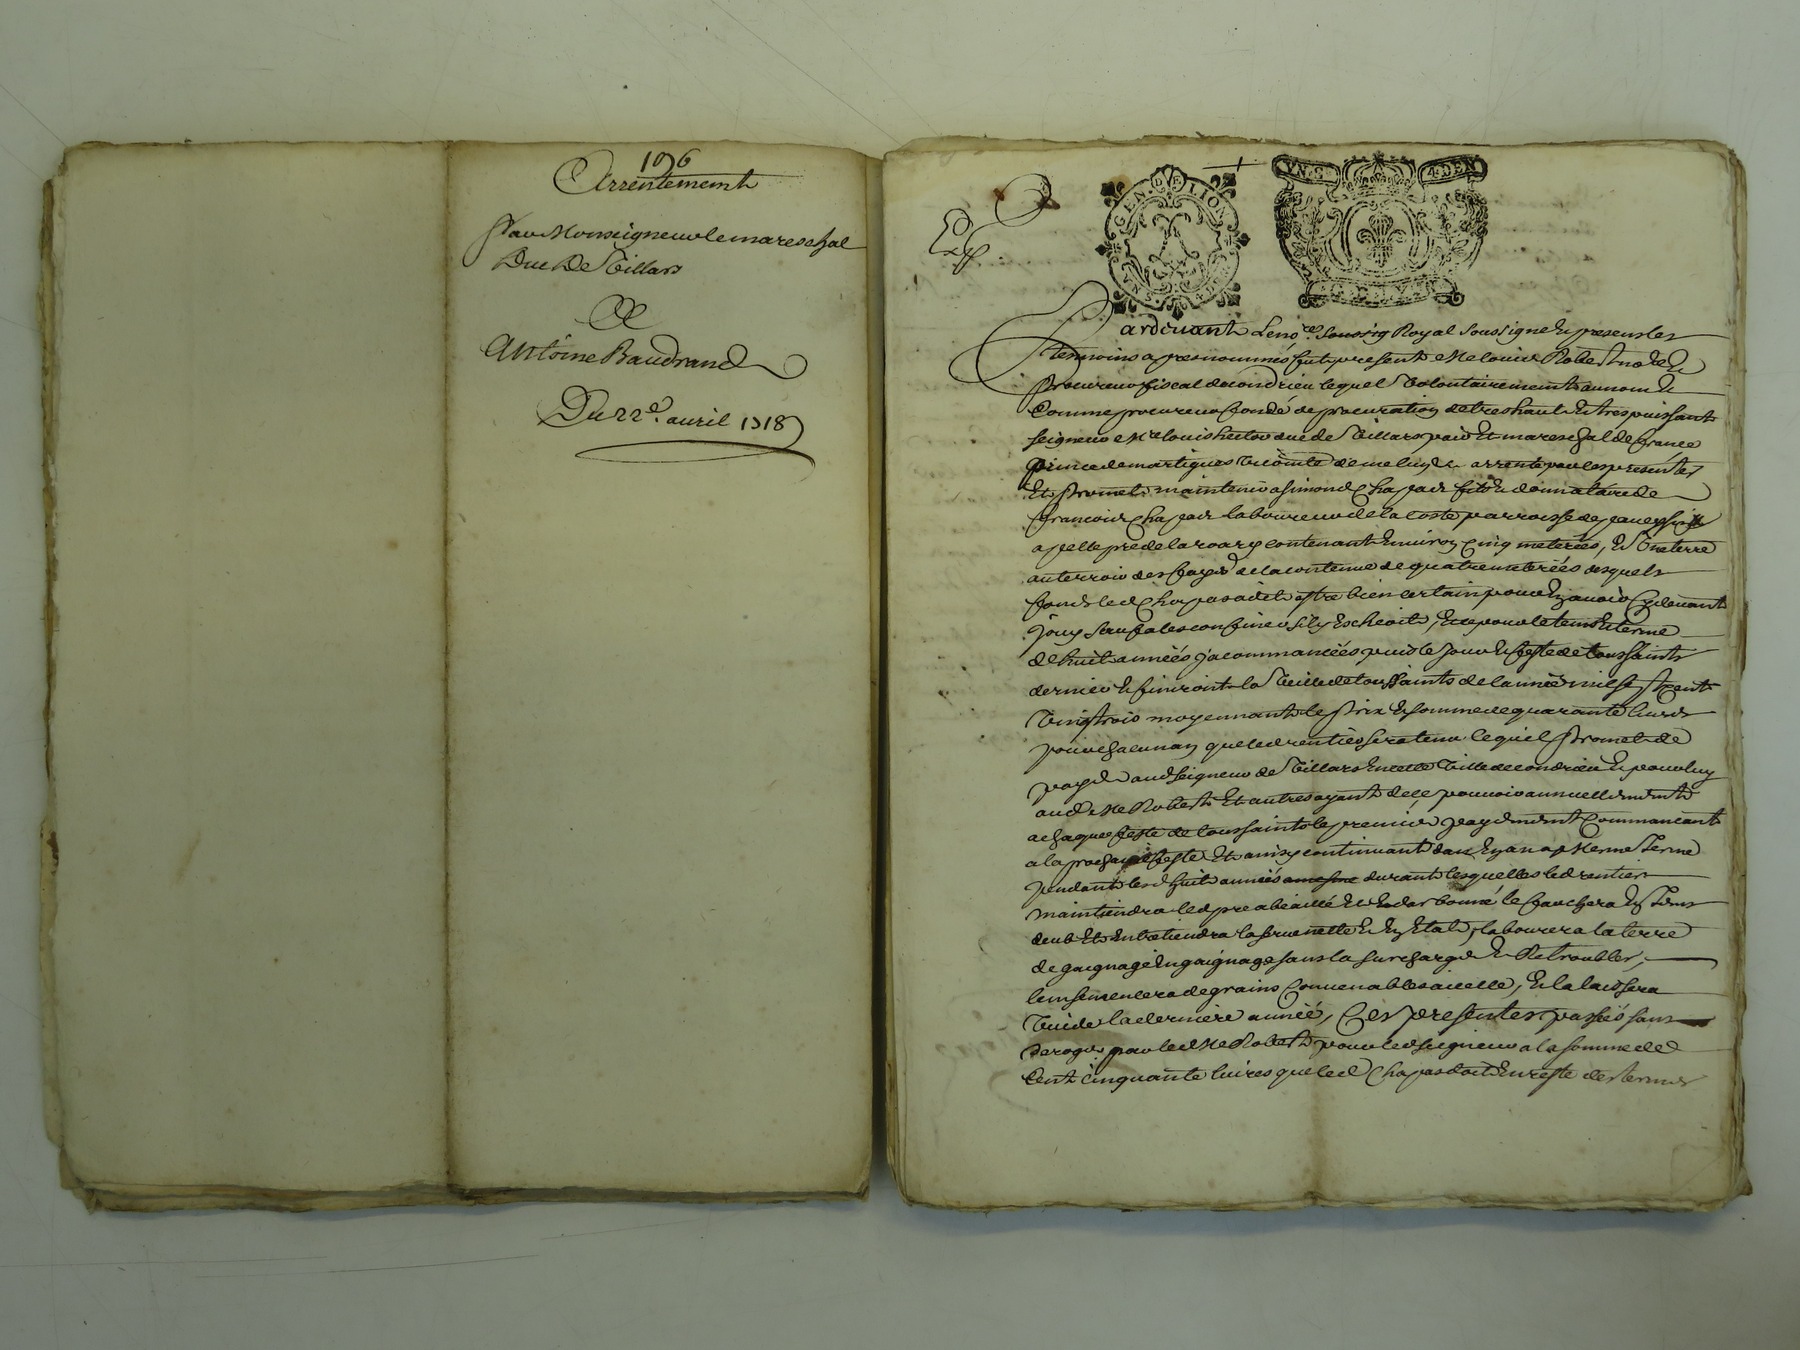 106
Arrentement
par Monseigneur le mareschal
Duc De Villars
A
Antoine Baudrand
Du 22e. avril 1718
Exp.
GEN. DE LION
VN. S. 4. DEN.
VN. S. 4. DEN.
Pardevant Le nore. Royal soussigne et presens les
tesmoins apres nommés fut present Me louis Robert nore. et
procureur fiscal de condrieu lequel volontairement au nom et
comme procureur fondé de procuration de tres haut et tres puissant
seigneur Mre louis hector duc de Villars pair et mareschal de france
prince de martigues vicomte de melun a arrenté par les presentes
et promet maintenir a simond Chapas fils et donnataire de
francois Chapas laboureur de la coste parroisse de
apellé pré de la roary contenant environ cinq meterées, et une terre
au terroir des fayes de la contenue de quatre meterées desquels
fonds led Chapas a dit estre bien certain pour en avoir cy devant
jouy sauf a les confiner s'il y escheoit, et ce pour le tems et terme
de huit années ja commancées puis le jour et feste de toussaints
dernier et finiront la veille de toussaints de lannée mil sept cent
vingt trois moyennant le prix et somme de quarante livres
pour chacun an que led rentier sera tenu lequel promet de
payer aud seigneur de Villars en cette ville de condrieu et pour luy
aud Me Robert et autres ayant de ce pouvoir annuellement
a chaque feste de toussaints le premier payement commancant
a la prochaine feste et ainsy continuant dan en an et terme a terme
pendant lesd huit années durant lesquelles led rentier
maintiendra led pré abeallé et endarbonné le fauchera en tems
deub et entretiendra la en etat, labourera la terre
de gaignage en gaignage sans la surcharger et retroubler,
lensemencera de grains convenables a icelle, et la laissera
vuide la derniere année, Ces presentes passées sans
deroger par led Me Robert pour led seigneur a la somme de
cent cinquante livres que led Chapas doit en reste des termes